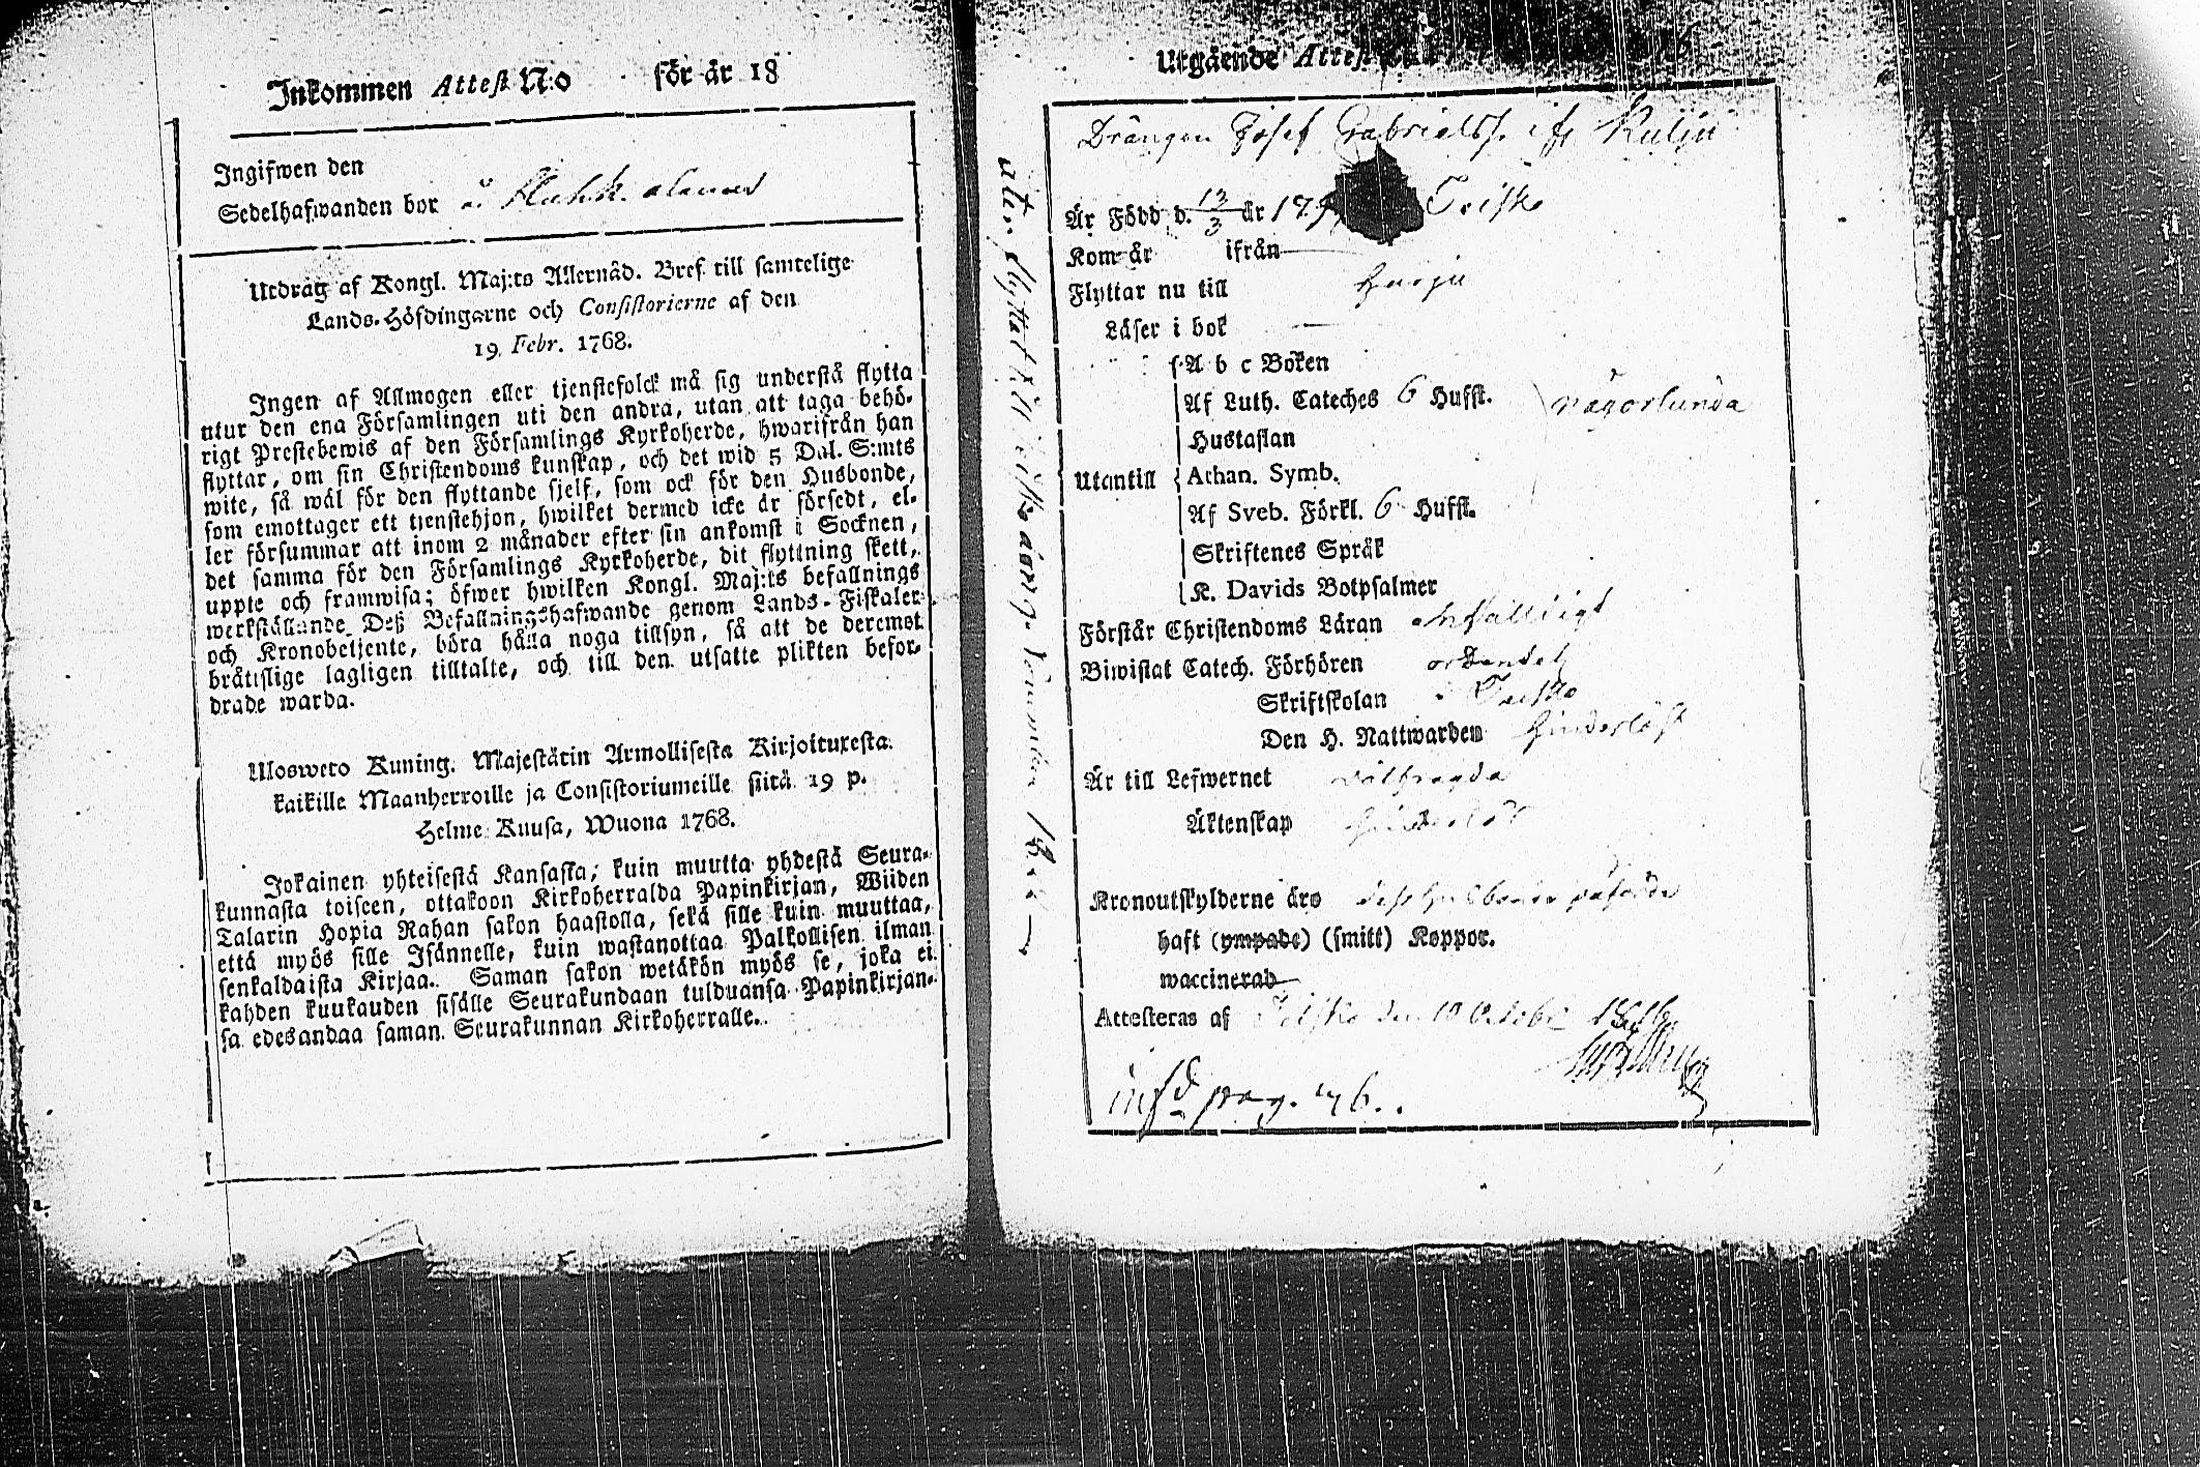 Inkommen Attest N:o för år 18
Ingifwen den
Sedelhafwanden bor
Utdrag af Kongl. Maj:ts Allernåd. Bref till samtelige
Lands-Höfdingarne och Consistorierne af den
19. Febr. 1768.
Ingen af Allmogen eller tjenstefolck må sig understå flytta
utur den ena Församlingen uti den andra, utan att taga behö-
rigt Prestebewis af den Församlings Kyrkoherde, hwarifrån han
flyttar, om sin Christendoms kunskap, och det wid 5 Dal. S:mts
wite, så wäl för den flyttande sjelf, som ock för den Husbonde,
som emottager ett tjenstehjon, hwilket dermed icke är försedt, el-
ler försummar att inom 2 månader efter sin ankomst i Socknen,
det samma för den Församlings Kyrkoherde, dit flyttning skett,
uppte och framwisa; öfwer hwilken Kongl. Maj:ts befallnings
werkställande Deß Befallningshafwande genom Lands-Fiskaler
och Kronobetjente, böra hålla noga tillsyn, så att de deremot
brätislige lagligen tilltalte, och till den utsatte plikten befor-
drade warda.
Ulosweto Kuning. Majestätin Armollisesta Kirjoituxesta
kaikille Maanherroille ja Consistoriumeille siitä 19 p.
Helme Kuusa, Wuona 1768.
Jokainen yhteisestä Kansasta, kuin muutta yhdestä Seura-
kunnasta toiseen, ottakoon Kirkoherralda Papinkirjan, Wiiden
Talarin Hopia Rahan sakon haastolla, sekä sille kuin muuttaa,
että myös sille Isännelle, kuin wastanottaa Palkollisen ilman
senkaldaista Kirjaa. Saman sakon wetäkön myös se, joka ei
kahden kuukauden sisälle Seurakundaan tulduansa Papinkirjan-
sa edesandaa saman Seurakunnan Kirkoherralle.
Utgående Attest
Drängen Josef Gabrielss. ifr Kulju
Är Född d. 13/3 år 179 Teisko
Kom år ifrån
Flyttar nu till Harju
Läser i bok
A b c Boken
Af Luth. Cateches 6 Hufst. någorlunda
Hustaflan
Utantill Athan. Symb.
Af Sveb. Förkl. 6 Hufst.
Skriftenes Språk
K. Davids Botpsalmer
Förstår Christendoms Läran enfalligt
Biwistat Catech. Förhören ordentel.
Skriftskolan i Teisko
Den H. Nattwarden hinderlöst
Är till Lefwernet wälfrägda
Äktenskap
Kronoutskylderne äro
haft (ympade) (smitt) Koppor.
waccinerad
Attesteras af Teisko den 10 October 1816
infd pag. 76.